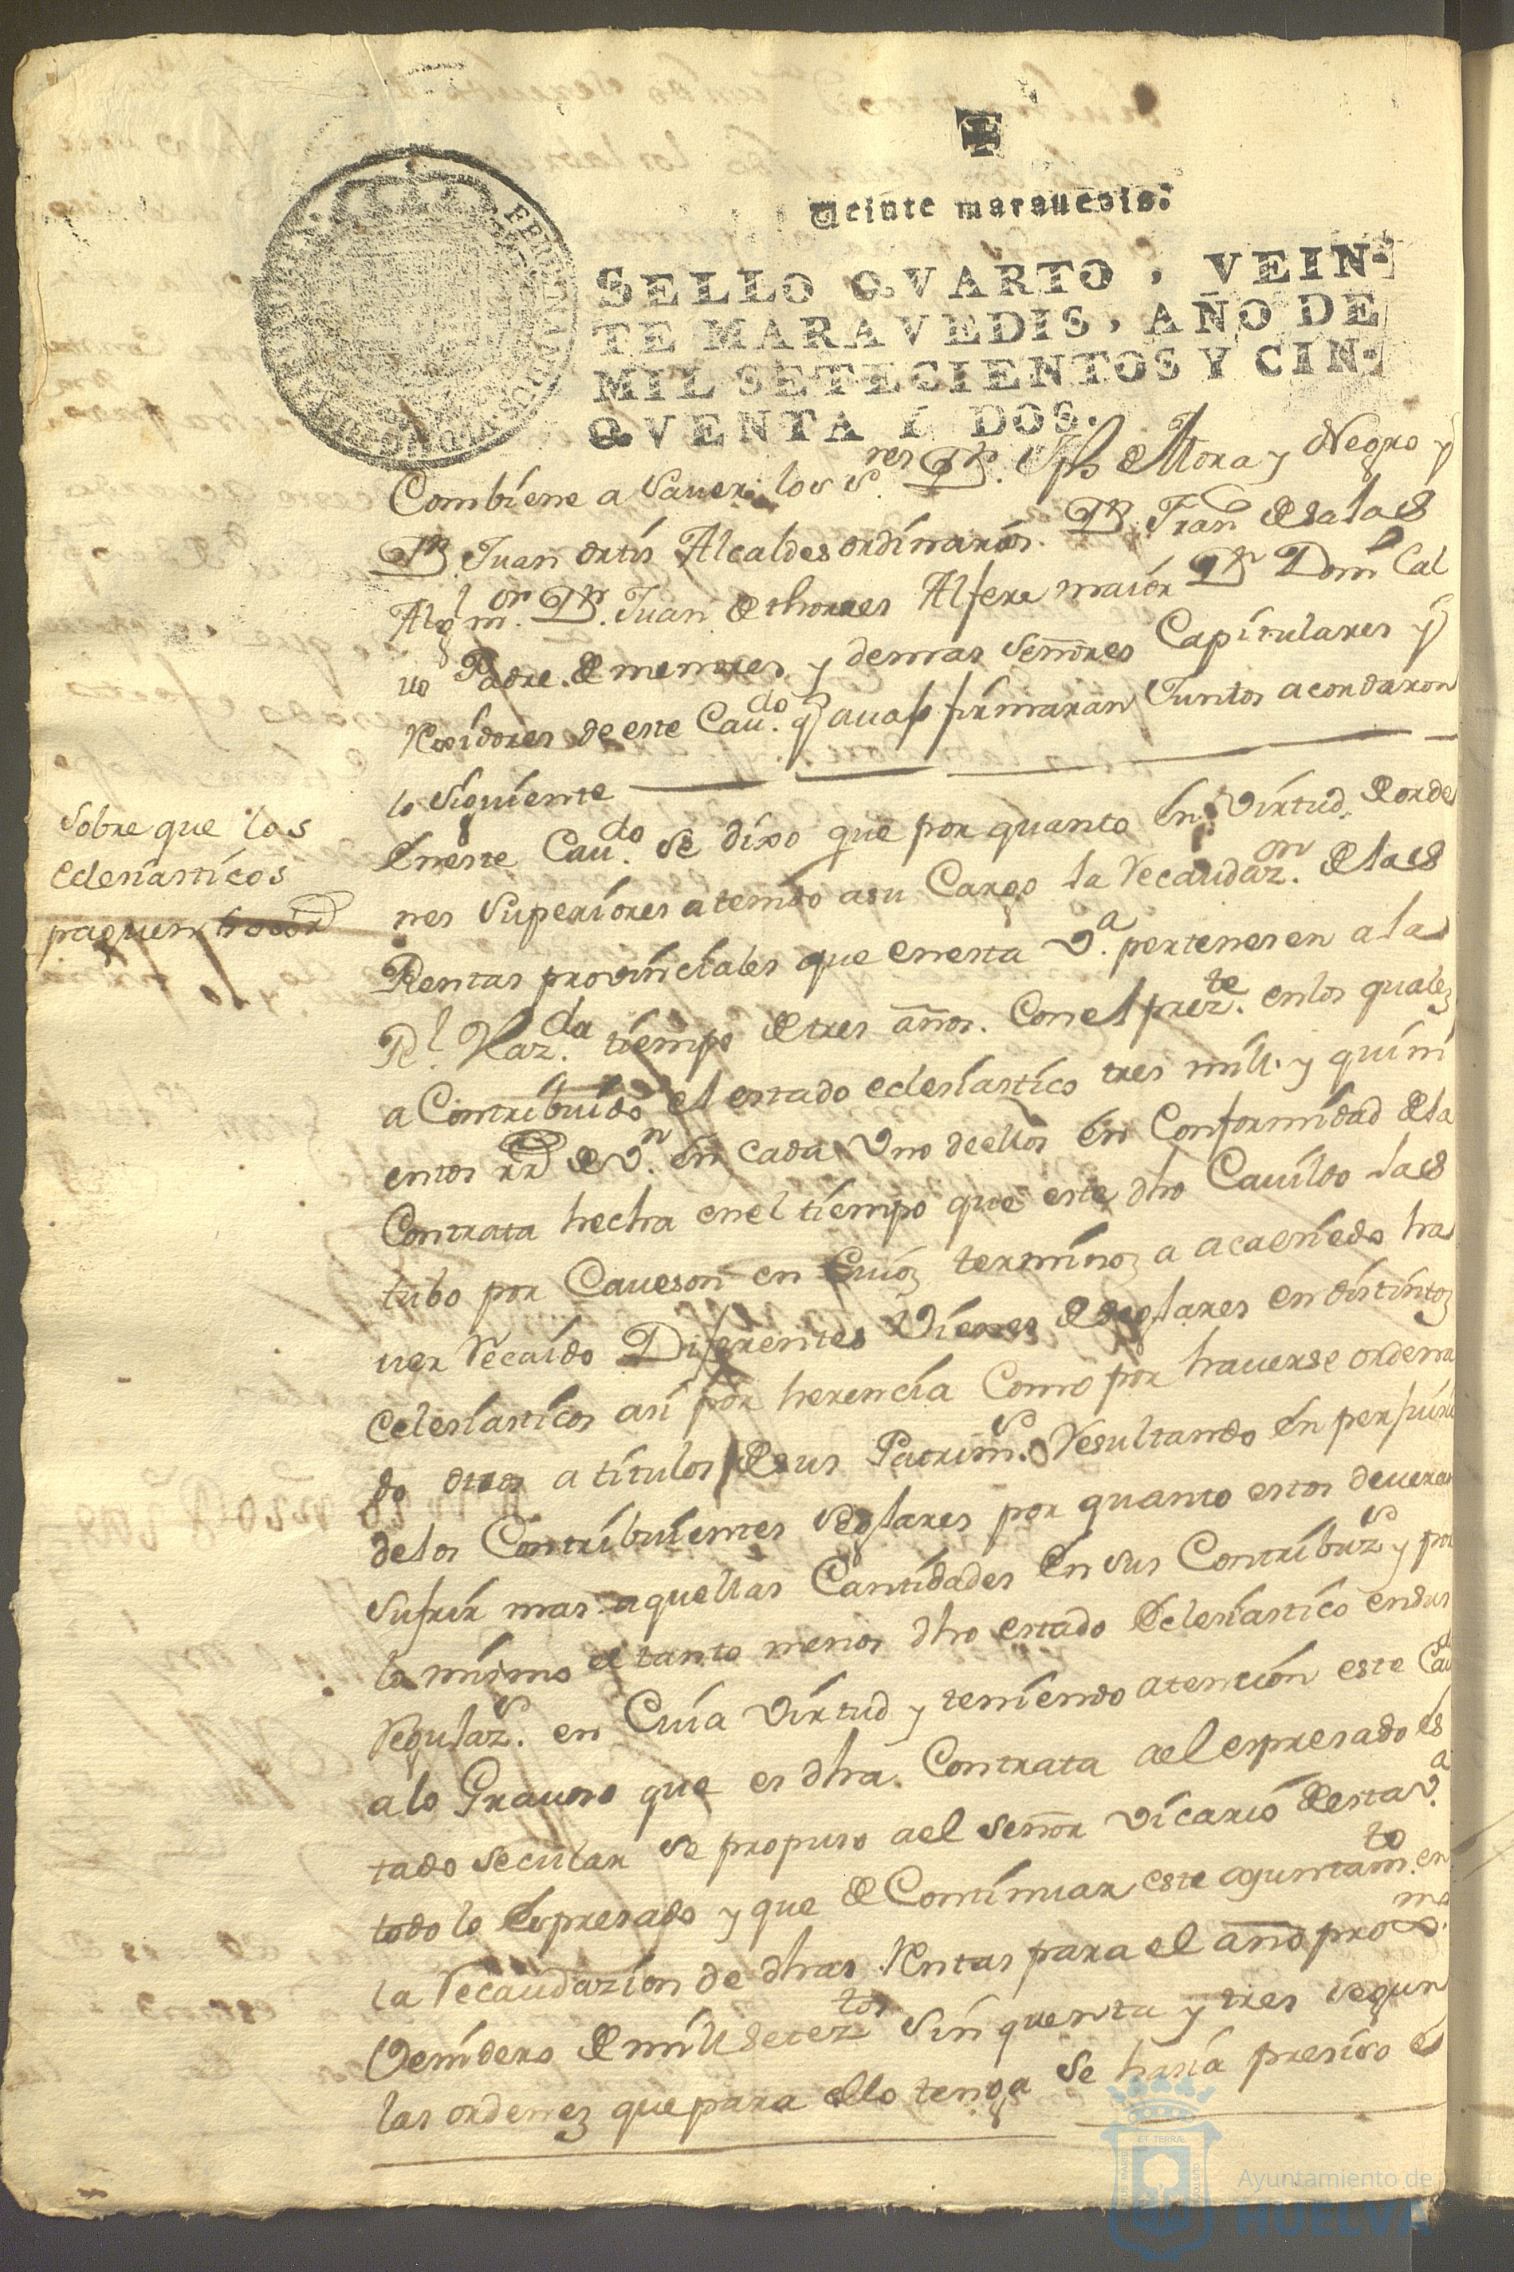 Veinte maravedis.
SELLO QVARTO, VEIN-
TE MARAVEDIS, AÑO DE
MIL SETECIENTOS Y CIN-
QVENTA Y DOS.
Combiene a Saver los S.res Dn. Jph de Mora y Negro y
Dn. Juan ortis Alcaldes ordinarios. Dn. Fran de Salas
Algl mor. Dn. Juan de thorres Alfere maior Dn Dom Cal
uo Padre de menores, y demas señores Capitulares y
Rexidores de este Cau.do q avajo firmaran Juntos acordaron
lo siguiente
Sobre que los
eclesiasticos
paguen
Eneste Cau.do se dixo que por quanto en Virtud de orde
nes superiores a tenido asu Cargo la Recaudaz.on de las
Rentas provinciales que enesta V.a pertenesen a la
Rl. Haz.da tiempo de tres años. Con el prez.te enlos quales
a Contribuido el estado eclesiastico tres mill y quini
entos rr de v.n en cada Uno deellos en Conformidad de la
Contrata hecha enel tiempo que este dho Cavildo las
tubo por Caveson en Cuios terminos a acaesido ha
ver Recaido Diferentes Vienes de seglares en distintos
eclesiasticos asi por herencia Como por haverse ordena
do otros a titulos de sus Patrim.s Resultando en perjuicio
delos Contribuientes seglares por quanto estos deveran
sufrir mas aquellas Cantidades en sus Contribuz.s y por
lo mismo el tanto menos dho estado Eclesiastico ensus
Regulaz.s en Cuia Virtud y teniendo atencion este Cau
a lo Gravoso que es dha Contrata ael espresado es
tado secular se propuso ael señor Vicario de esta V.a
todo lo espresado y que de Continuar este ayuntam.to en
la Recaudazion de dhas Rentas para el año prox.mo
Venidero de mill setez.tos sinquenta y tres segun
las ordenes que para ello tenga se hasia presiso el
Ayuntamiento de
HUELVA